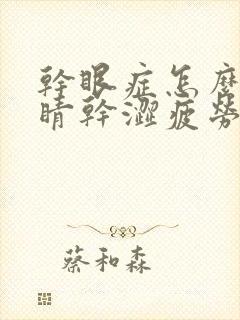 幹眼症怎麼
睛幹澀疲勞
蔡和森